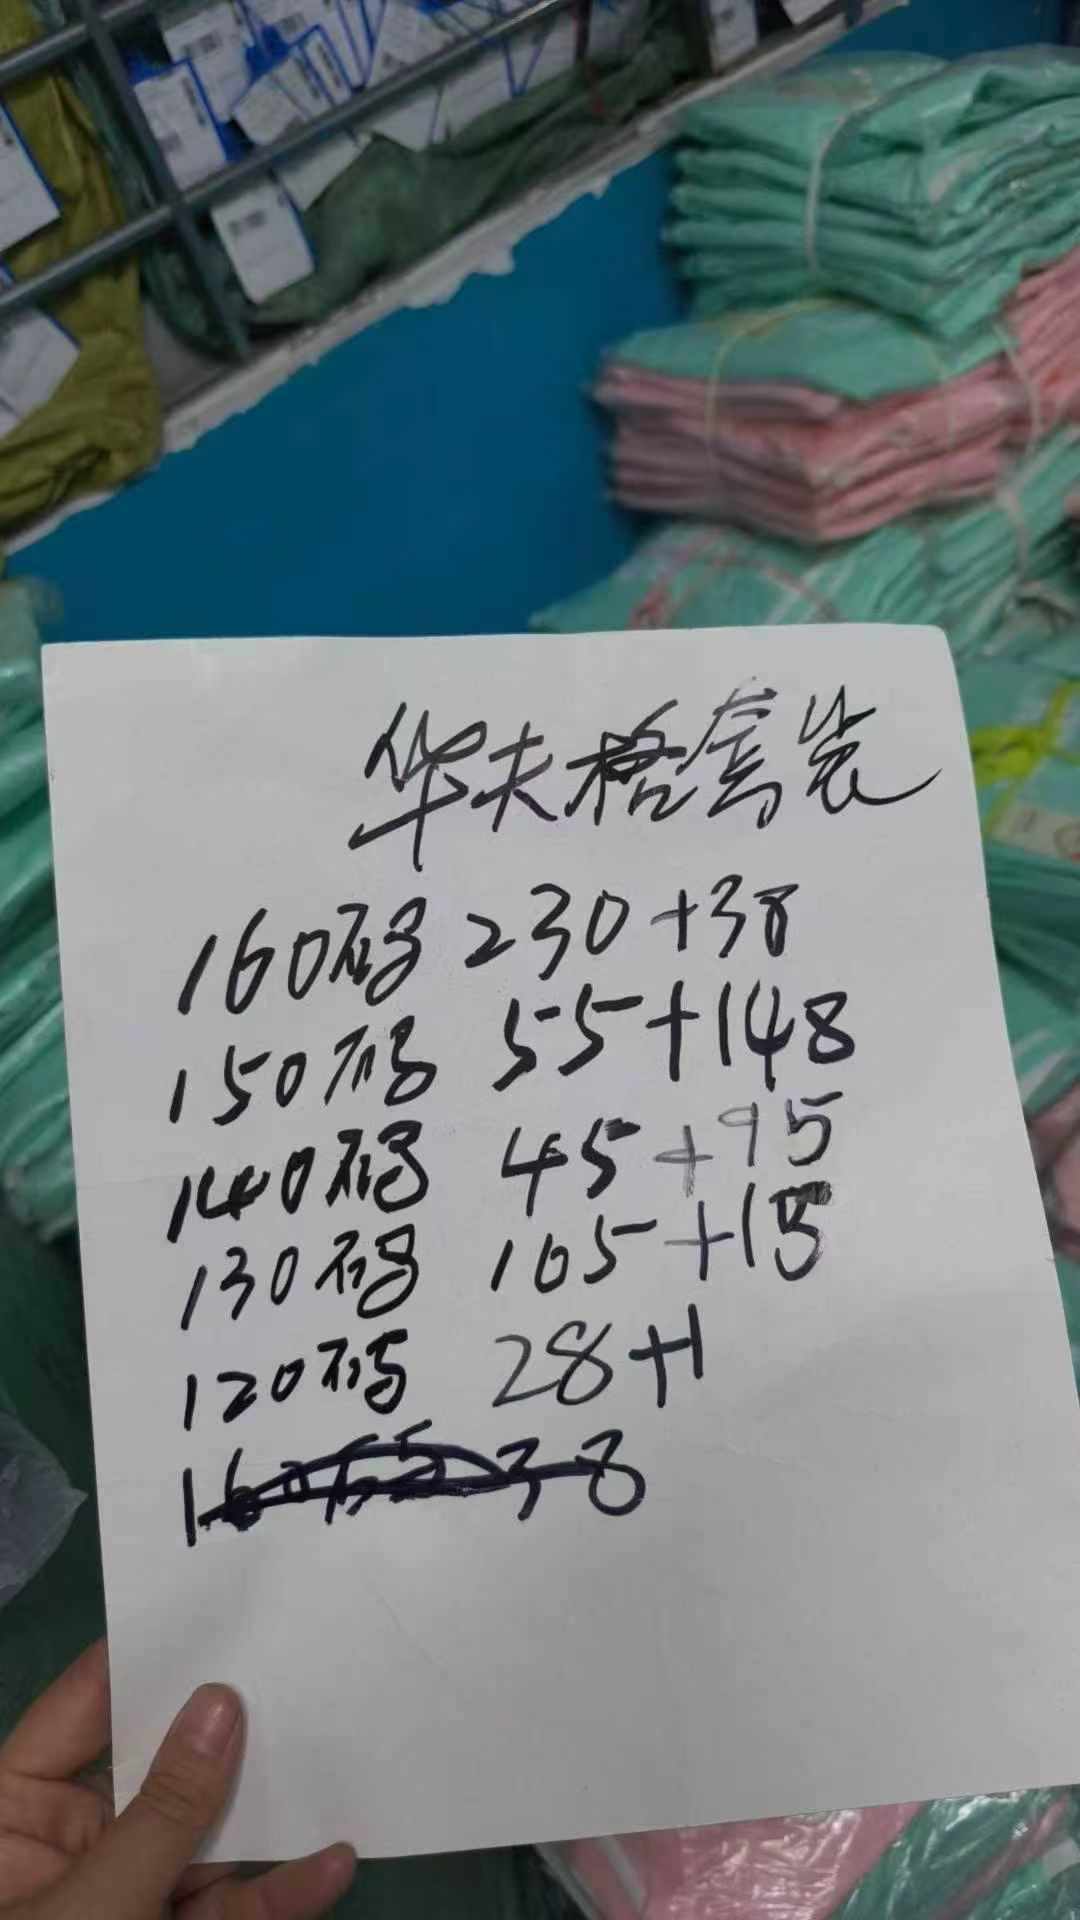 华夫格套装
160码 230+38
150码 55+148
140码 45+95
130码 105+15
120码 28+1
160码 38